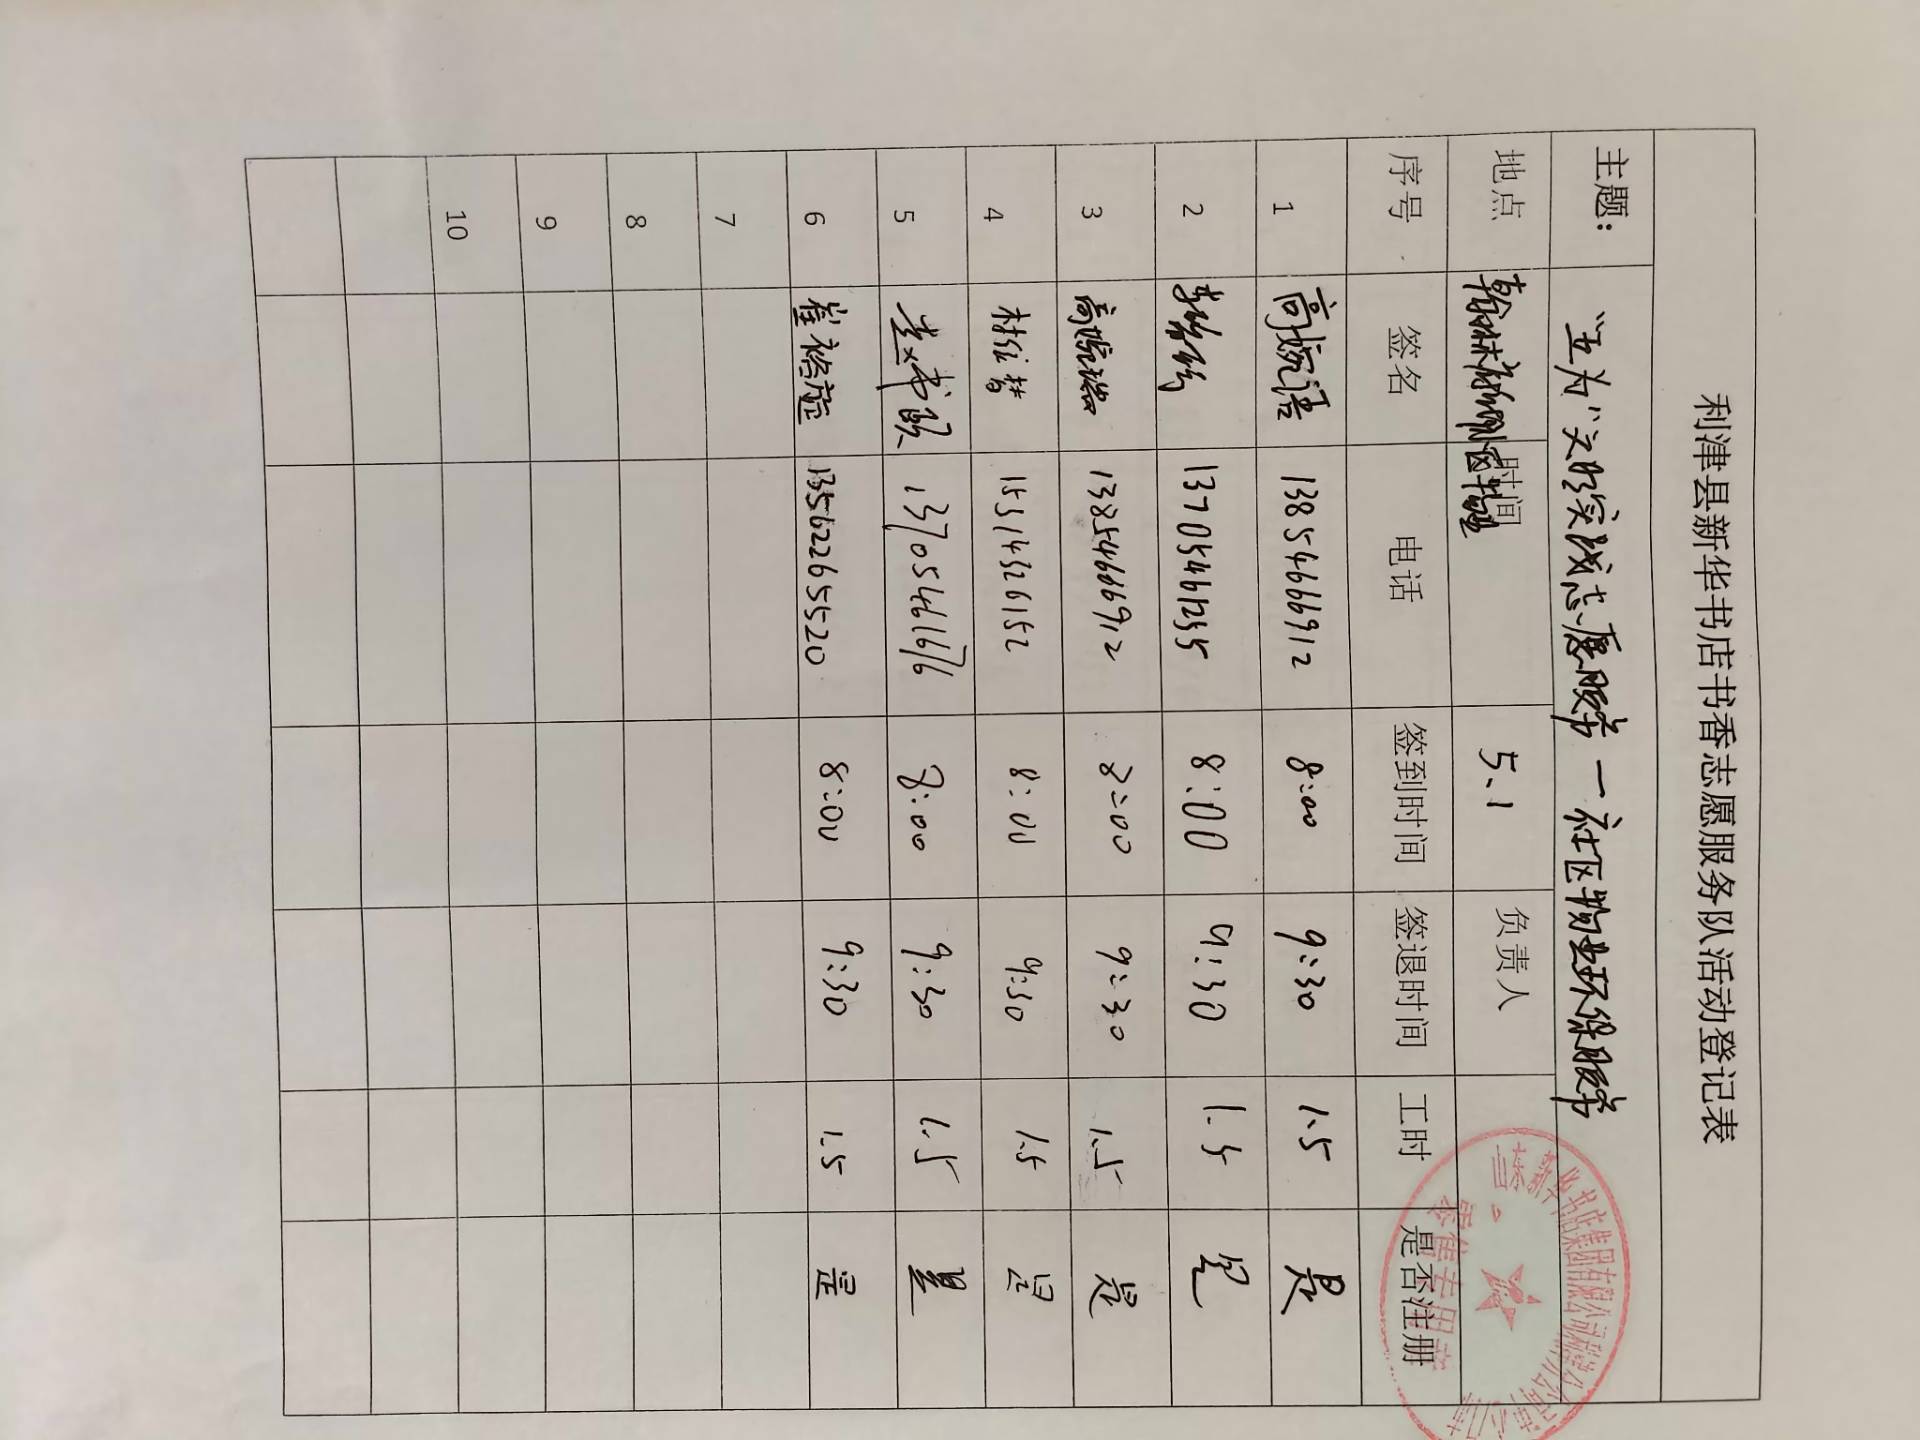 利津县新华书店书香志愿服务队活动登记表
主题： “五为”文明实践志愿服务 — 社区物业环保服务
地点 时间 5.1 负责人
序号 签名 电话 签到时间 签退时间 工时 是否注册
1 高婉语 13854666912 8:00 9:30 1.5 是
2 13705461255 8:00 9:30 1.5 是
3 高婉璐 13854666912 8:00 9:30 1.5 是
4 15514326152 8:00 9:30 1.5 是
5 13705461676 8:00 9:30 1.5 是
6 13562265520 8:00 9:30 1.5 是
7
8
9
10